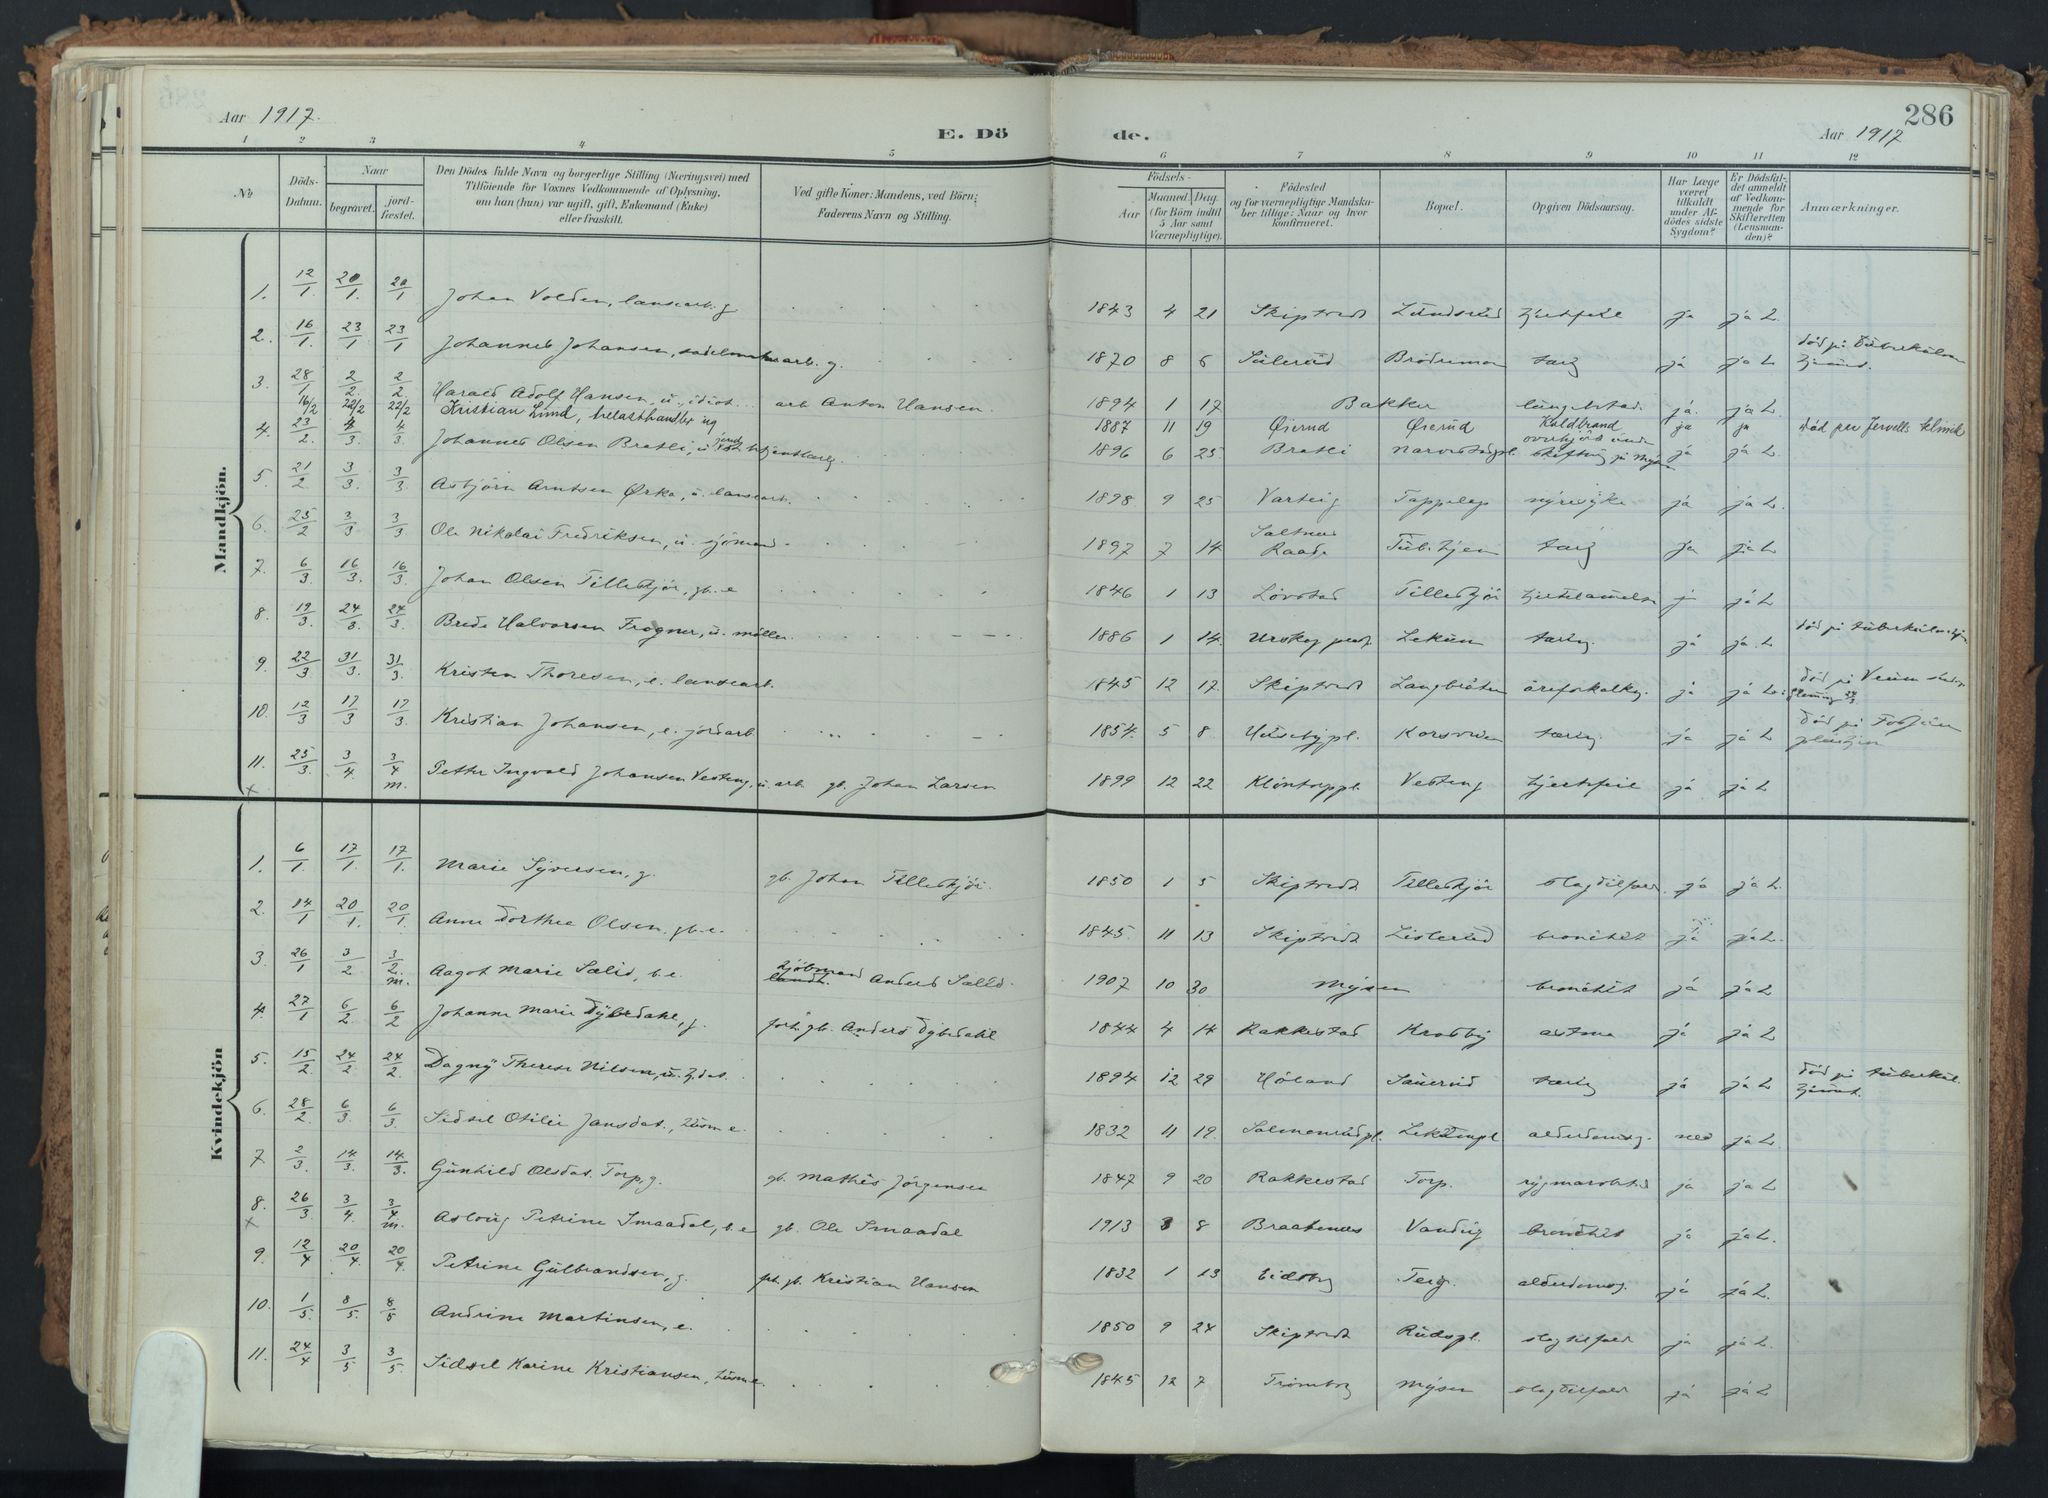 286
Aar 1917.
E. Dö
de.
Aar 1917
1 2 3 4 5 6 7 8 9 10 11 12
No
Döds-Datum.
Naar
begravet.
jord-fæstet.
Den Dödes fulde Navn og borgerlige Stilling (Næringsvei) med
Tilföiende for Voxnes Vedkommende af Oplysning,
om han (hun) var ugift, gift, Enkemand (Enke)
eller fraskilt.
Ved gifte Koner: Mandens, ved Börn:
Faderens Navn og Stilling.
Födsels-
Aar
Maaned. Dag.
(for Börn indtil
5 Aar samt
Værnepligtige).
Födested
og for værnepligtige Mandska-
ber tillige: Naar og hvor
Konfirmeret.
Bopæl.
Opgiven Dödsaarsag.
Har Læge
været
tilkaldt
under Af-
dödes sidste
Sygdom?
Er Dödsfal-
det anmeldt
af Vedkom-
mende for
Skifteretten
(Lensman-
den)?
Anmærkninger.
Mandkjön.
1. 12/1. 20/1. 20/1 Johan Volden, g 1843 4 21 Skiptvedt Lundsrud hjertfeil ja ja L.
2. 16/1. 23/1 23/1 Johannes Johansen, g. 1870 8 6 Sulerud tærg ja ja L död på
3. 28/1 2/2. 2/2 Harald Adolf Hansen, u. idiot arb Anton Hansen. 1894 1 17 Bakker ja. ja L
16/2 22/2 22/2 Kristian Lund, ug 1887 11 19 Öierud Öierud Koldbrand ja ja Död paa Jervells klinik
4. 23/2. 4/3. 4/3. Johannes Olsen Bratli, u 1896 6 25 Bratli skiftning på Mysen ja ja L.
5. 21/2 3/3. 3/3. Asbjörn Arntsen Örka, u. 1898 9 25 Varteig nyresyke ja ja L.
6. 25/2 3/3 3/3 Ole Nikolai Fredriksen, u. sjömand 1897 7 14 Raade Tub. hjem tærg ja ja L
7. 6/3. 16/3. 16/3. Johan Olsen Tilleskjör, gb. e 1846 1 13 Lövstad Tilleskjör hjertelamelse ja ja L
8. 19/3. 24/3 24/3. Brede Halvorsen Frogner, u. möller 1886 1 14. Urskog Lekum tærg. ja ja L
9. 22/3 31/3 31/3. Kristen Thoresen, e. 1845 12 17. Skiptvedt Langbråten åreforkalkn. ja ja L. död på Veum
10. 12/3 17/3 17/3. Kristian Johansen, e. jordarb 1854. 5 8. Huseby pl. Korsveien tærg. ja ja L Död på
11. 25/3. 3/4. 3/4 m. Petter Ingvald Johansen Vesteng, u. arb gb. Johan Larsen 1899 12 22 Vesteng hjertfeil ja ja L
×
Kvindekjön
1. 6/1 17/1. 17/1. Marie Syversen, g. gb. Johan Tilleskjör. 1850 1 5 Skiptvedt Tilleskjör slagtilfæld. ja ja L
2. 14/1 20/1. 20/1. Anne Dorthea Olsen. gb. e. 1845. 11 13 Skiptvedt Listerud bronchit ja ja L.
3. 26/1 3/2 3/2. m. Aagot Marie Sælid, b. e. kjöbmand Anders Sælid. 1907 10 30 Mysen bronchit ja ja L
4. 27/1 6/2. 6/2 Johanne Marie Dybedahl, g. forh. gb. Anders Dybedahl 1844 4 14 Rakkestad Krosby astma ja ja L
5. 15/2. 24/2 24/2. Dagny Therese Nilsen, u. 1894 12 29 Höland tærg ja ja L död på
6. 28/2. 6/3. 6/3. Sidsel Otilie Jansdat., husm e. 1832 11 19. Salmonrud pl. Lekumpl alderdomsvg. nei ja L.
7 2/3. 14/3. 14/3. Gunhild Olsdat. Torp, g. gb. Mathis Jörgensen 1847 9 20 Rakkestad Torp. ja ja L
8 26/3. 3/4. 3/4. m. Aslaug Petrine Smaadal, b. e gb. Ole Smaadal 1913 3 8 Braatenæs Vandug bronchit ja ja L.
×
9. 12/4 20/4. 20/4. Petrine Gulbrandsen, g. forh. gb. Kristian Hansen 1832 1 13 Eidsberg Terg. alderdomsvg. ja ja L.
10. 1/5. 8/5. 8/5 Andrine Martinsen, e. 1850 9 24 Skiptvedt Rudspl. slagtilfæld ja ja L
11. 24/4 3/5 3/5. Sidsel Karine Kristiansen, husm e. 1845 12 7 Trömborg Mysen slagtilfæld ja ja L